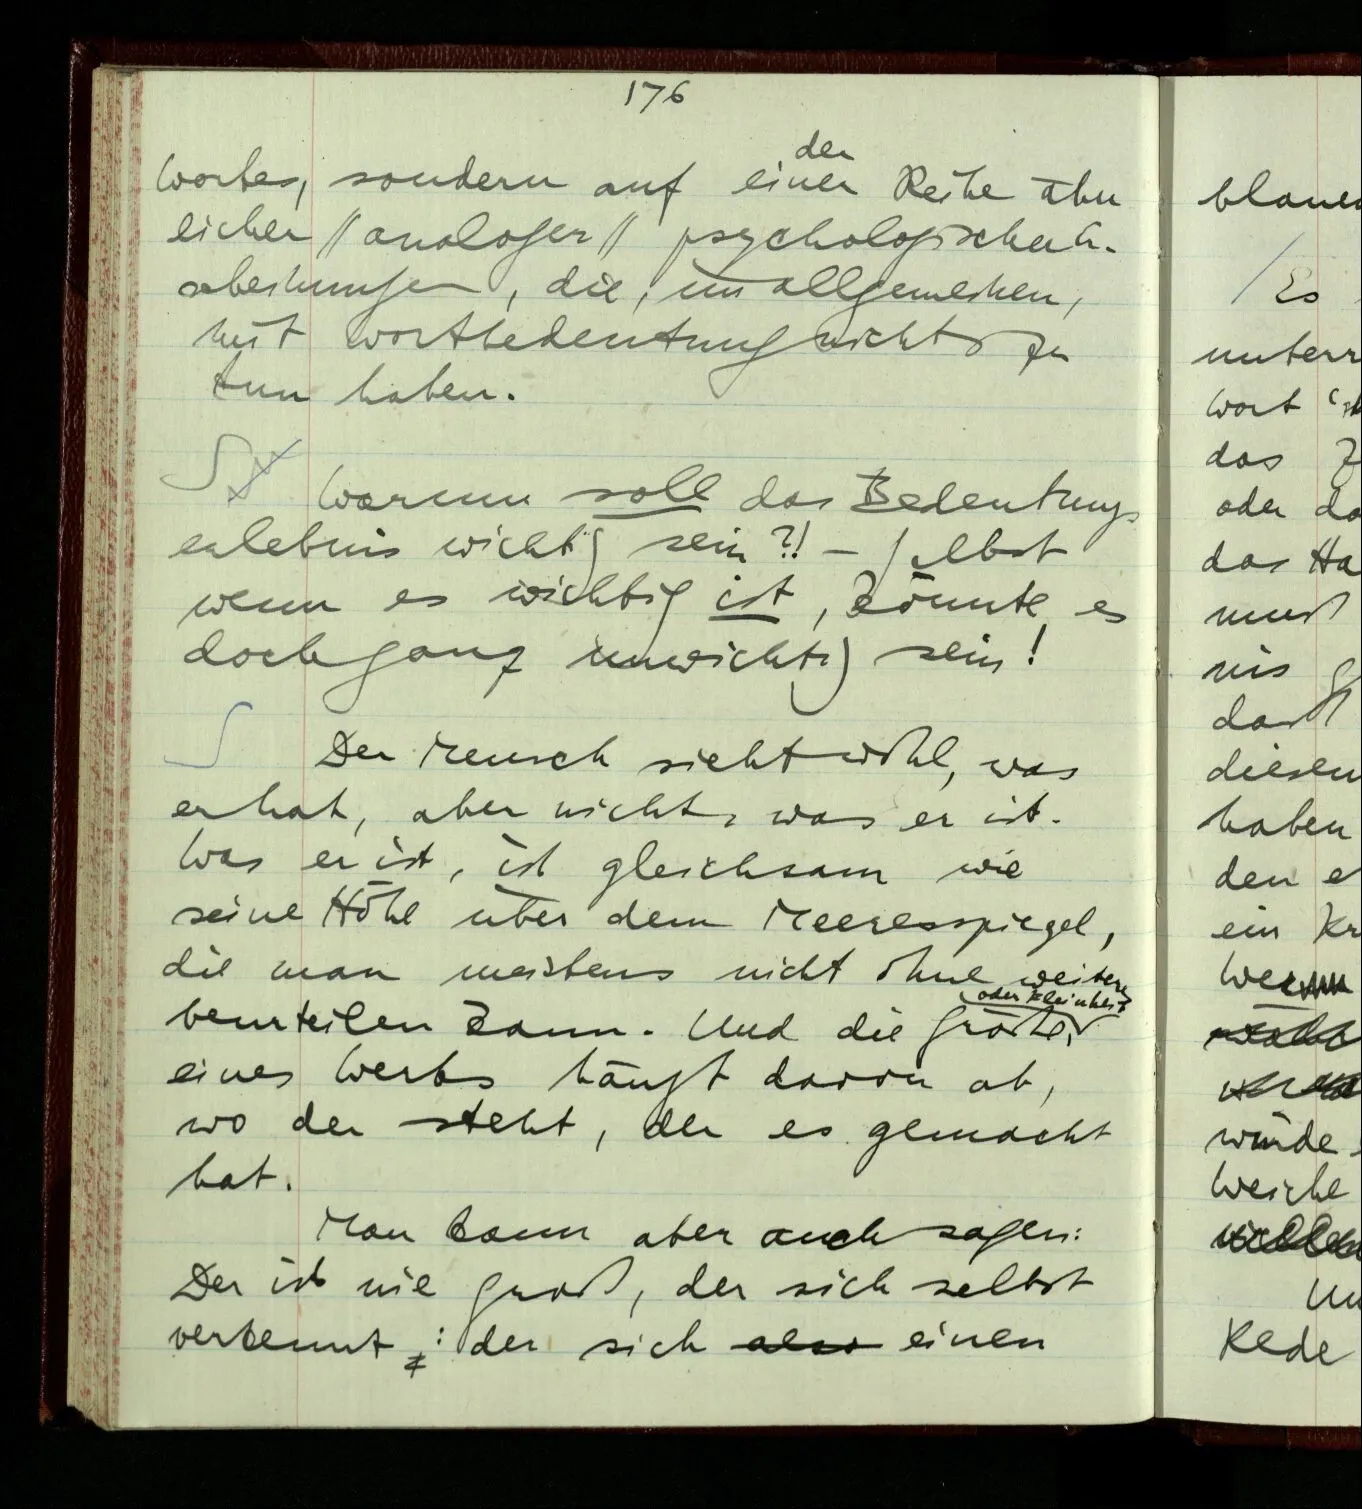 176
der
Wortes, sondern auf einer Reihe ähn
licher // analoger // psychologischer
, die, im allgemeinen,
mit Wortbedeutung nichts zu
tun haben.
Warum soll das Bedeutungs
erlebnis wichtig sein?! – Selbst
wenn es wichtig ist, könnte es
doch ganz unwichtig sein!
Der Mensch sieht wohl, was
er hat, aber nicht, was er ist.
Was er ist, ist gleichsam wie
seine Höhe über dem Meeresspiegel,
die man meistens nicht ohne weiteres
oder Kleinheit
beurteilen kann. Und die Größe,
eines Werks hängt davon ab,
wo der steht, der es gemacht
hat.
Man kann aber auch sagen:
Der ist nie groß, der sich selbst
verkennt: der sich also einen
blauen
/ Es
unterr
Wort
das
oder da
das Ha
muß
nis
daß
diesen
haben
den e
ein Kr
Wenn
würde
Weiche
Rede